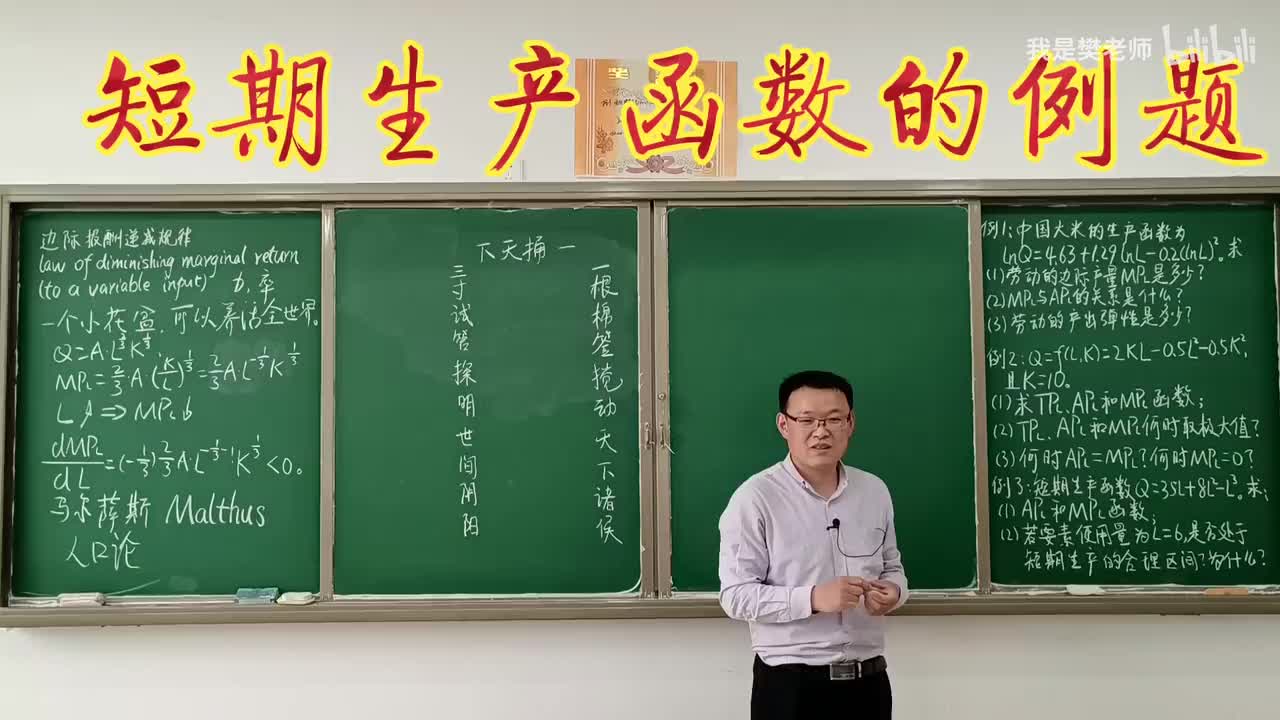 我是樊老师 bilibili
短期生产函数的例题
边际报酬递减规律
law of diminishing marginal return
(to a variable input)
一个小花盆,可以养活全世界。
Q=A·L^{2/3}K^{1/3}
MP_L=2/3 A(K/L)^{1/3}=2/3AL^{-1/3}K^{1/3}
dMP_L/dL=(-1/3)2/3A·L^{-1/3-1}K^{1/3}<0。
马尔萨斯 Malthus
人口论
下天捅一
一根棉签搅动天下诸侯
三寸试管探明世间阴阳
例1:中国大米的生产函数为
lnQ=4.63+1.29lnL-0.2(lnL)²。求
(1)劳动的边际产量MP_L是多少?
(2)MP_L与AP_L的关系是什么?
(3)劳动的产出弹性是多少?
例2:Q=f(L,K)=2KL-0.5L²-0.5K²,
且K=10。
(1)求TP_L、AP_L和MP_L函数;
(2)TP_L、AP_L和MP_L何时取极大值?
(3)何时AP_L=MP_L?何时MP_L=0?
例3:短期生产函数Q=35L+8L²-L³。求:
(1)AP_L和MP_L函数;
(2)若要素使用量为L=6,是否处于
短期生产的合理区间?为什么?